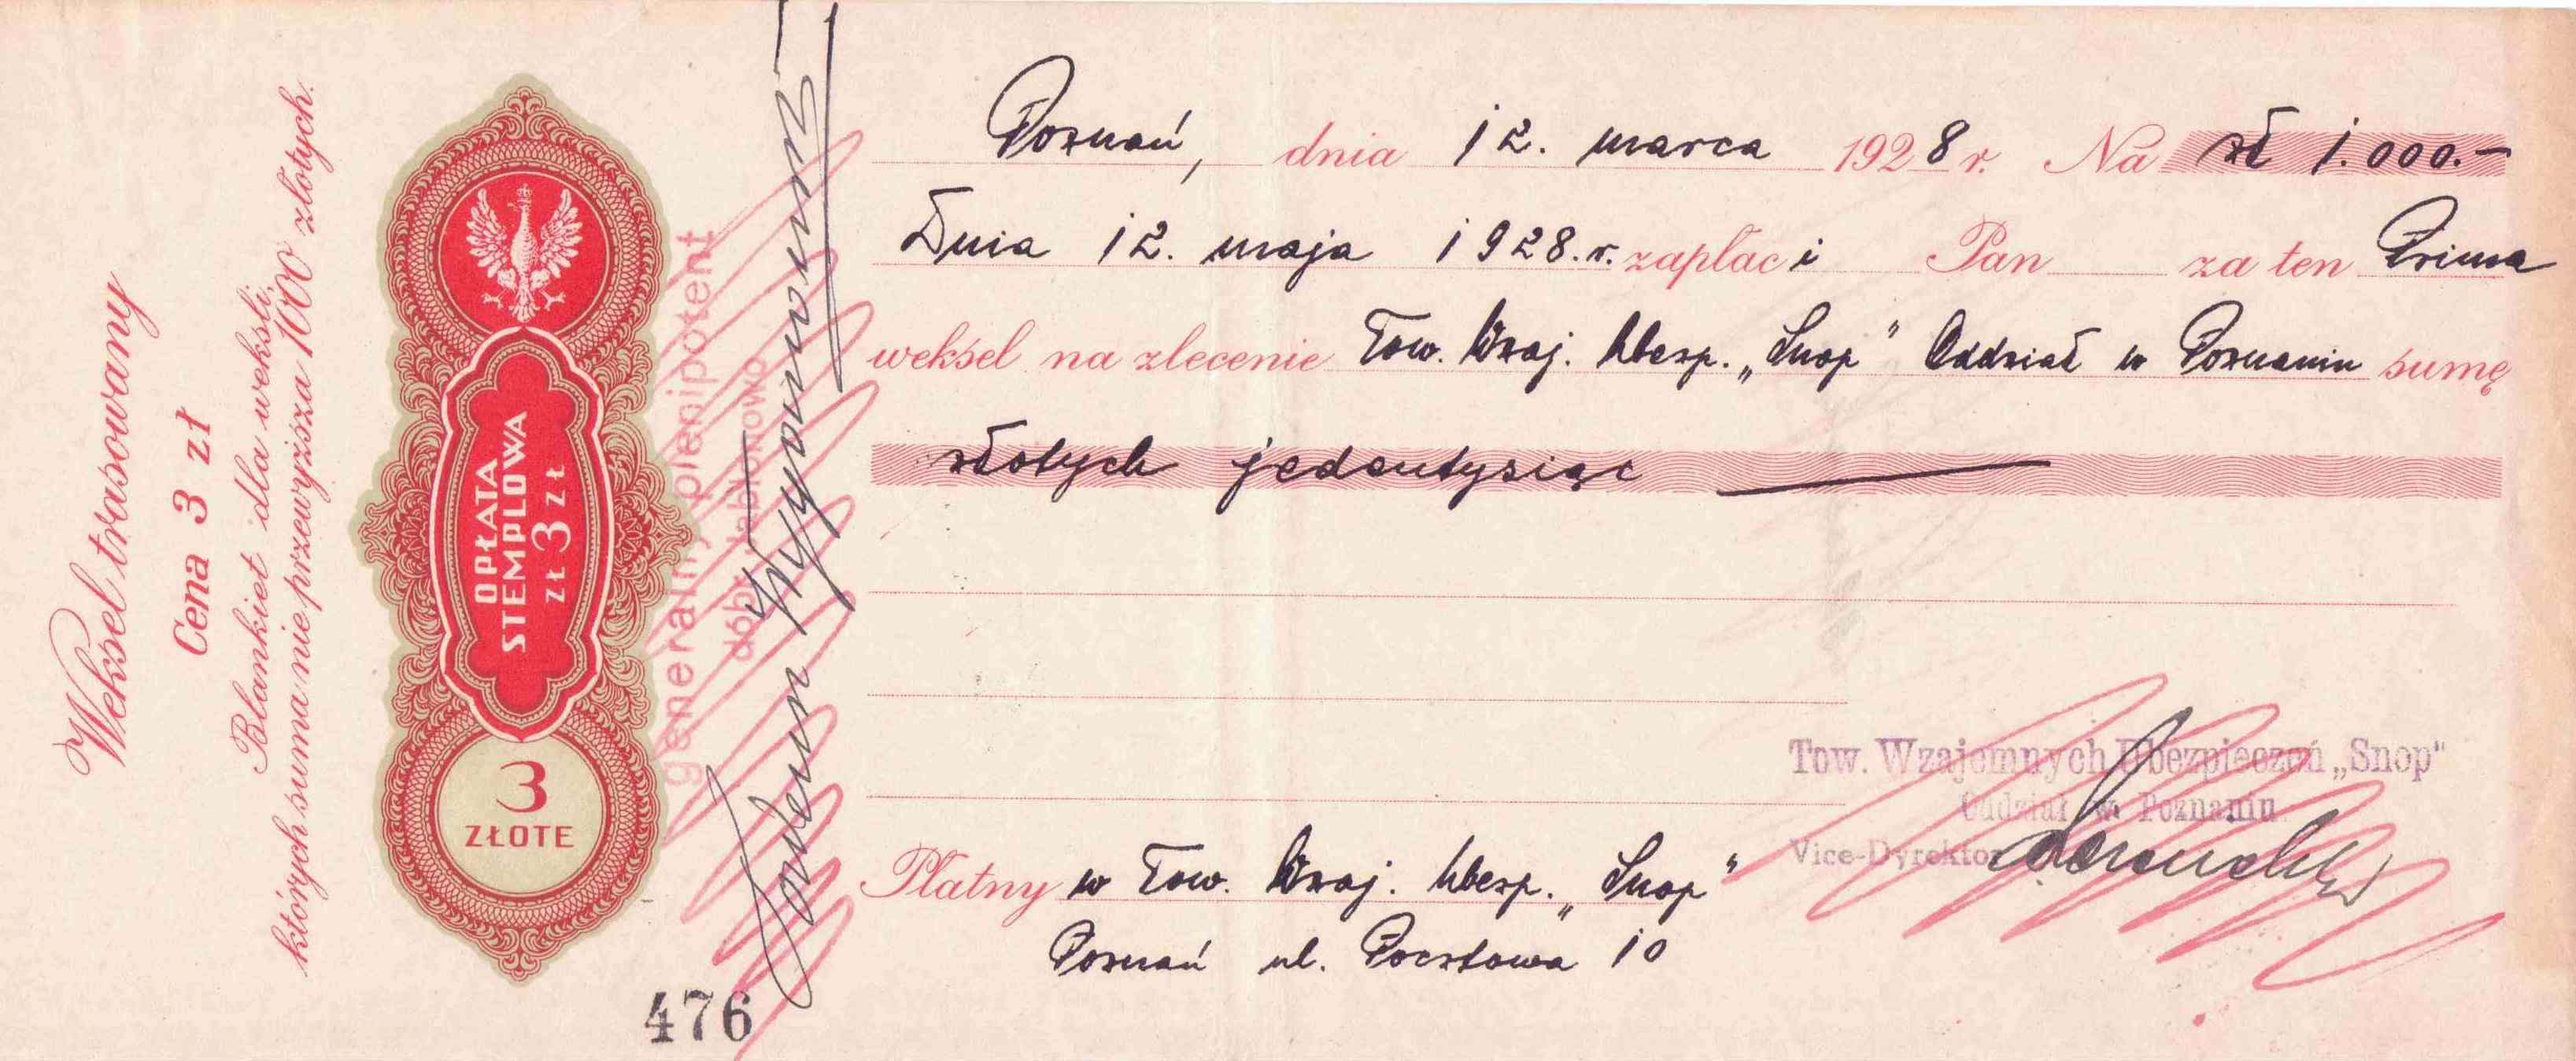 Weksel trasowany
Cena 3 zł
Blankiet dla weksli,
których suma nie przewyższa 1000 złotych.
OPŁATA
STEMPLOWA
ZŁ 3 ZŁ
3
ZŁOTE
generalny plenipotent
dóbr
476
Poznań, dnia 12. marca 1928 r. Na zł 1.000.-
Dnia 12. maja 1928. r. zapłaci Pan za ten Prima
weksel na zlecenie Tow. Wzaj. Ubezp. „Snop" Oddział w Poznaniu sumę
złotych jedentysiąc
Tow. Wzajemnych Ubezpieczeń „Snop"
Oddział w Poznaniu
Vice-Dyrektor
Płatny w Tow. Wzaj. Ubezp. „Snop"
Poznań ul. Pocztowa 10